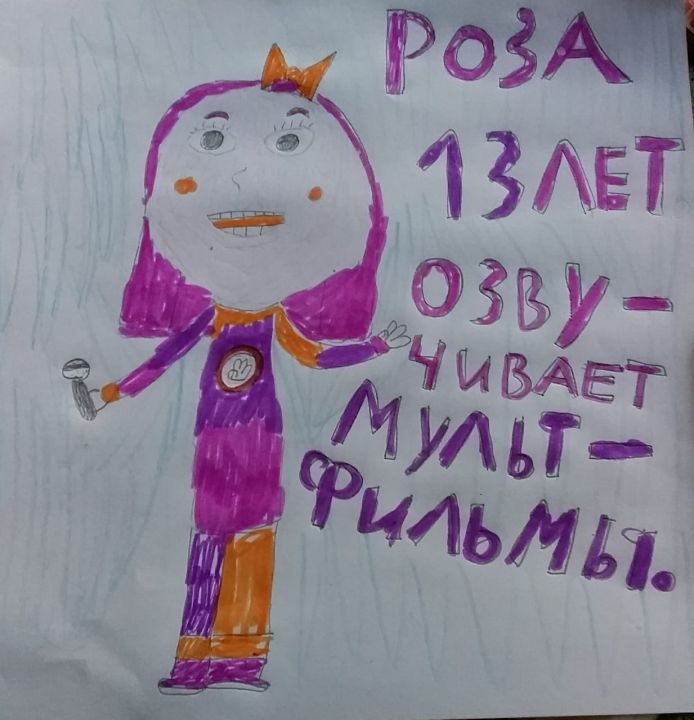 РОЗА
13 ЛЕТ
ОЗВУ-
ЧИВАЕТ
МУЛЬТ-
ФИЛЬМЫ.